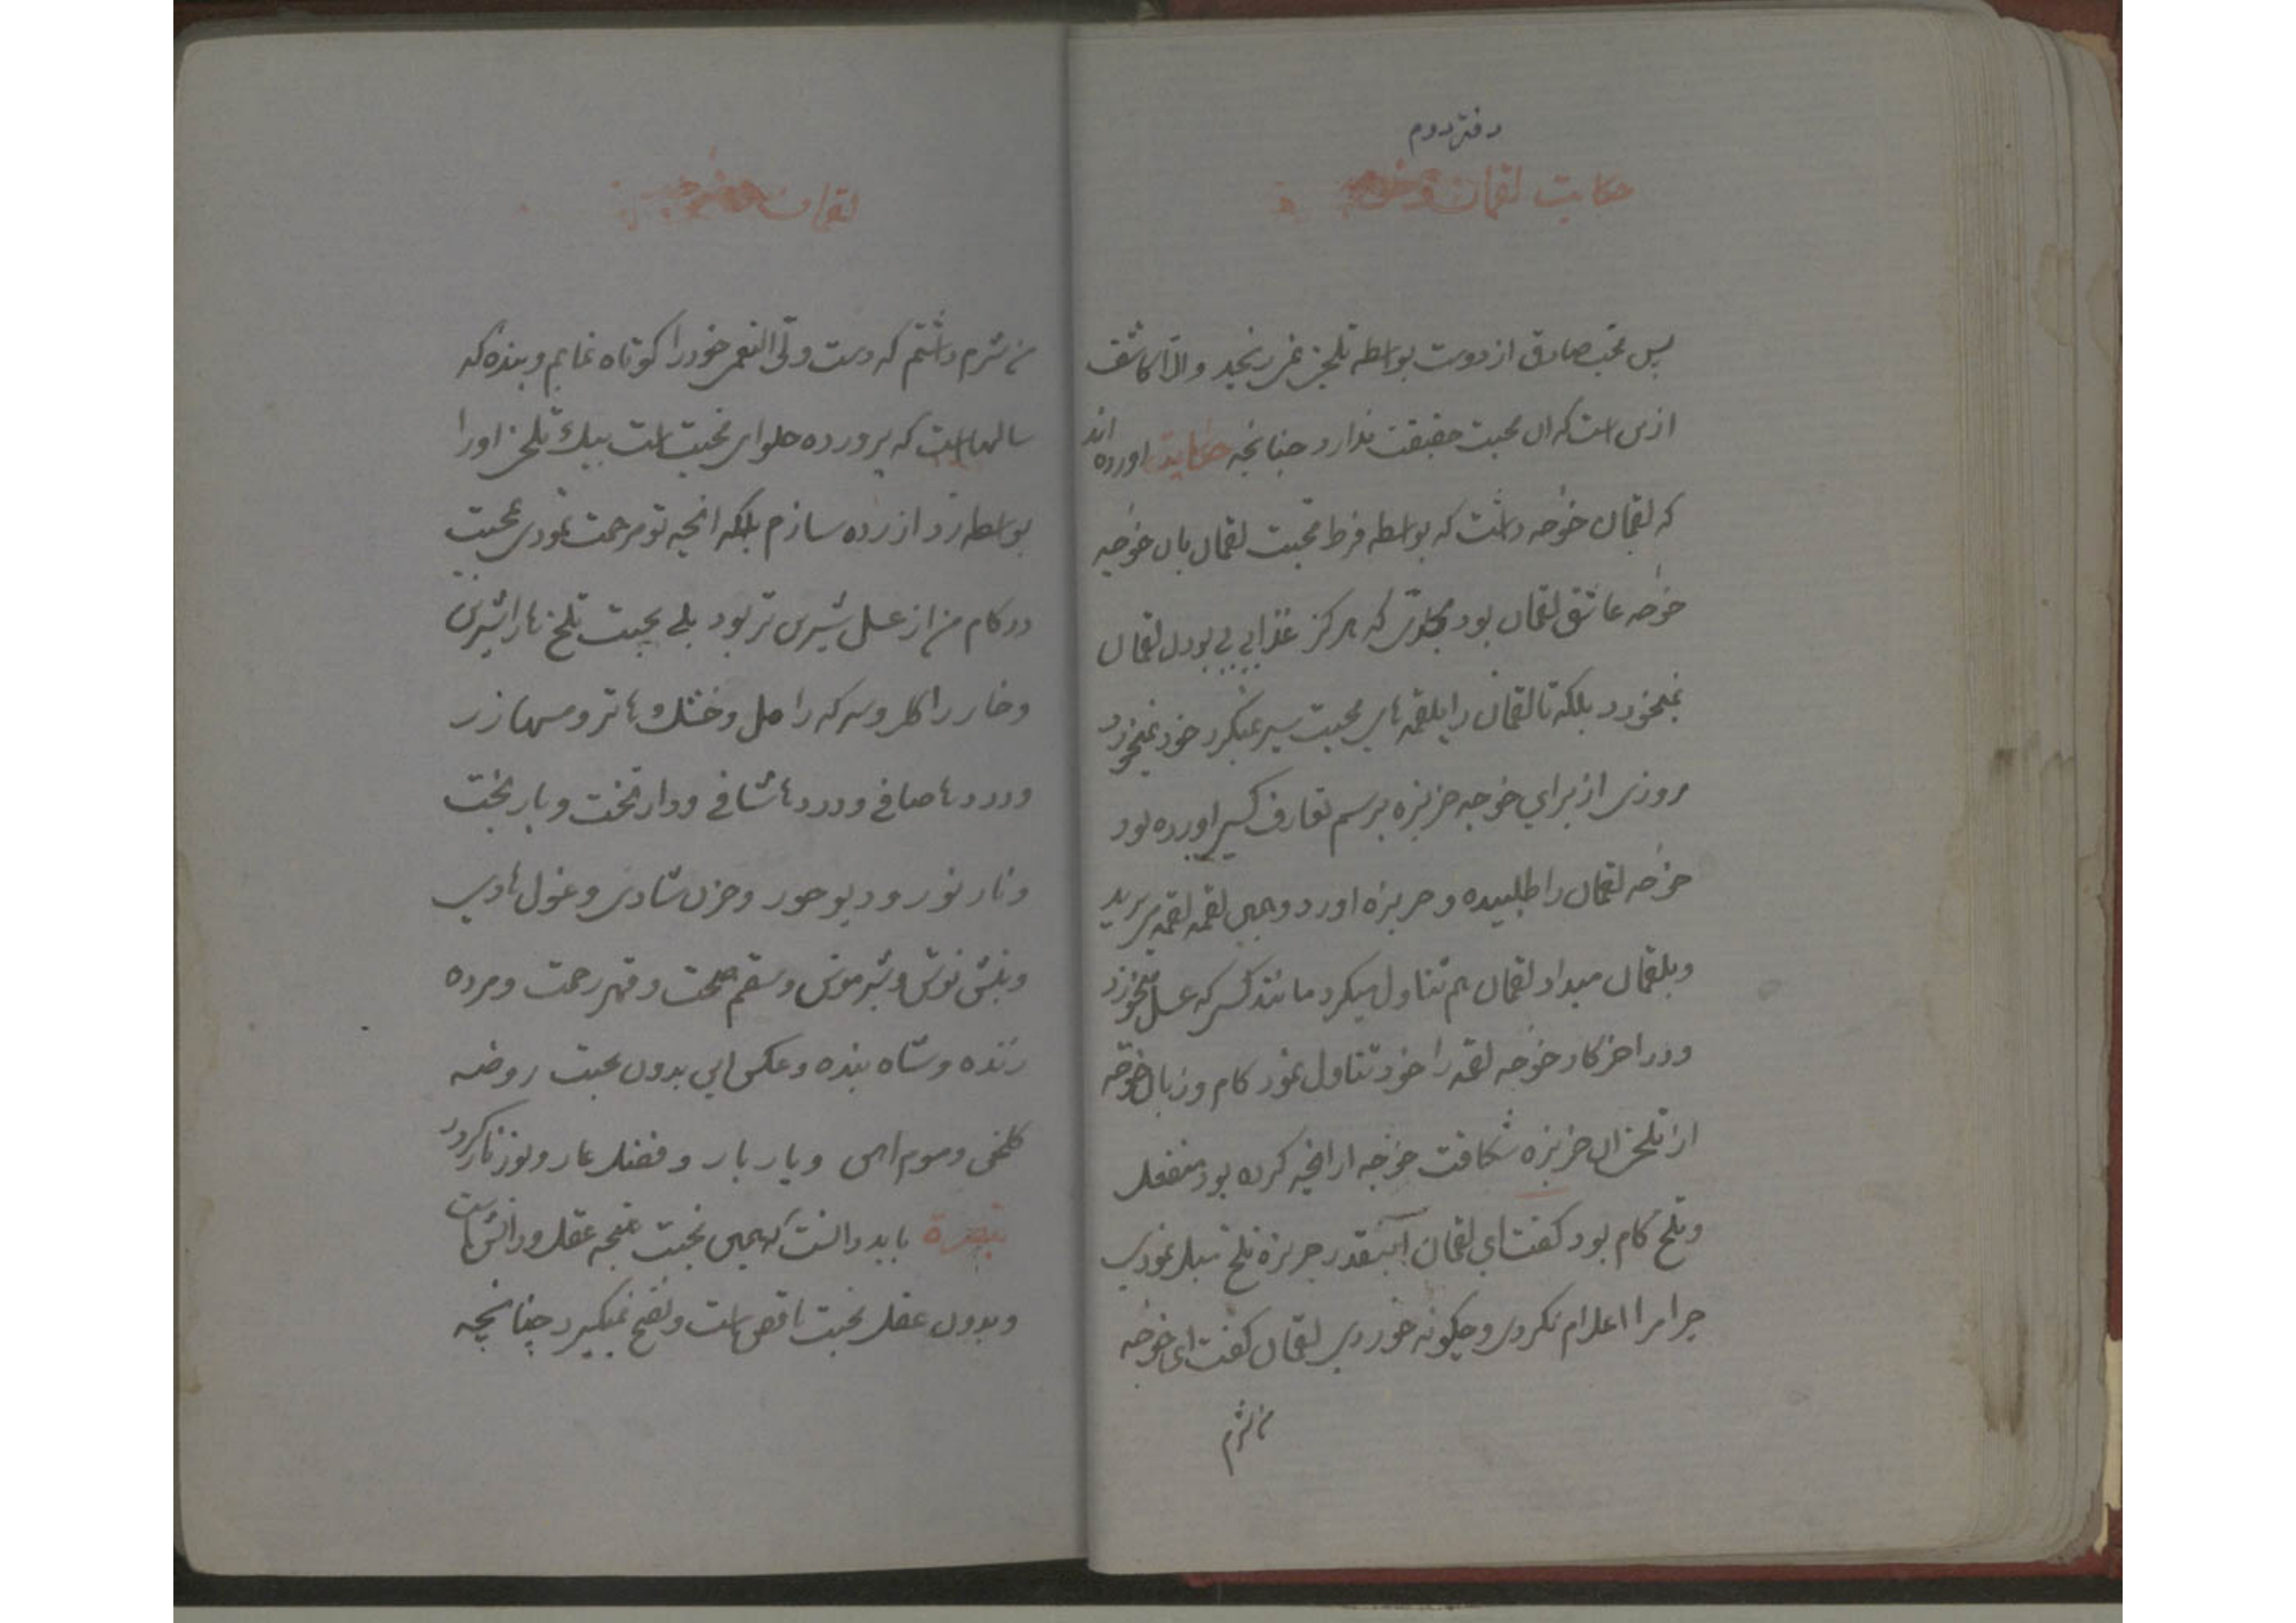 دفتر دوم
حکایت لقمان و خوجه
پس محب صادق از دوست بواسطه تلخی نمی رنجد والا کاشف
ازین است که ان محبت حقیقت ندارد چنانچه حکایت اورده اند
که لقمان خوجه داشت که بواسطه فرط محبت لقمان بان خوجه
خوجه عاشق لقمان بود که هرکز غذایی بی بودن لقمان
نمیخورد بلکه تا لقمان را بلقمه های محبت سیر نمیکرد خود نمیخورد
روزی از برای خوجه خربزه برسم تعارف کسی اورده بود
خوجه لقمان را طلبیده و خربزه اورد و همین لقمه لقمه می برید
و بلقمان میداد لقمان هم تناول میکرد مانند کسی که عسل میخورد
و در اخر کار خوجه لقمه را خود تناول نمود کام و زبان خوجه
از تلخی ان خربزه شکافت خوجه از انچه کرده بود منفعل
و تلخ کام بود کفت ای لقمان اینقدر خربزه تلخ میل نمودی
چرا مرا اعلام نکردی و چکونه خوردی لقمان کفت ای خوجه
من شرم
لقمان
من شرم داشتم که دست ولی النعمی خود را کوتاه نمایم و بنده که
سالهاست که پرورده حلوای محبت است بیک تلخی اورا
بواسطه رد ازرده سازم بلکه انچه تو مرحمت نمودی بمحبت
در کام من از عسل شیرین تر بود بلی محبت تلخ ها را شیرین
و خار را کل و سرکه را مل و خشک ها تر و مسها زر
و دردها صافی و دردها شافی و دار تخت و بار بخت
و نار نور و دیو حور و حزن شادی و غول هادی
و نیش نوش و شیر موش و سقم صحت و قهر رحمت و مرده
زنده و شاه بنده و عکس این بدون محبت روضه
کلخن و موم اهن و یار بار و فضل عار و نور نار کردد
تبصره باید دانست که همین محبت نتیجه عقل و دانش است
و بدون عقل محبت ناقص است و نضج نمیکیرد چنانچه